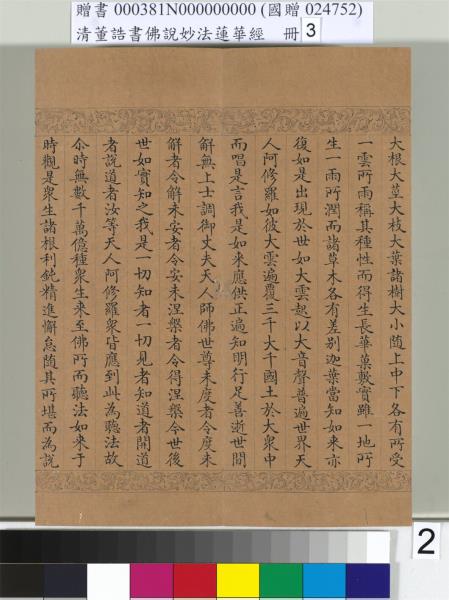 贈書 000381N000000000 (國贈 024752)
清董誥書佛說妙法蓮華經 冊 3
大根大莖大枝大葉諸樹大小隨上中下各有所受
一雲所雨稱其種性而得生長華菓敷實雖一地所
生一雨所潤而諸草木各有差别迦葉當知如來亦
復如是出現於世如大雲起以大音聲普遍世界天
人阿修羅如彼大雲遍覆三千大千國土於大衆中
而唱是言我是如來應供正遍知明行足善逝世間
解無上士調御丈夫天人師佛世尊未度者令度未
解者令解未安者令安未涅槃者令得涅槃今世後
世如實知之我是一切知者一切見者知道者開道
者說道者汝等天人阿修羅衆皆應到此為聽法故
尒時無數千萬億種衆生來至佛所而聽法如來于
時觀是衆生諸根利鈍精進懈怠隨其所堪而為說
2